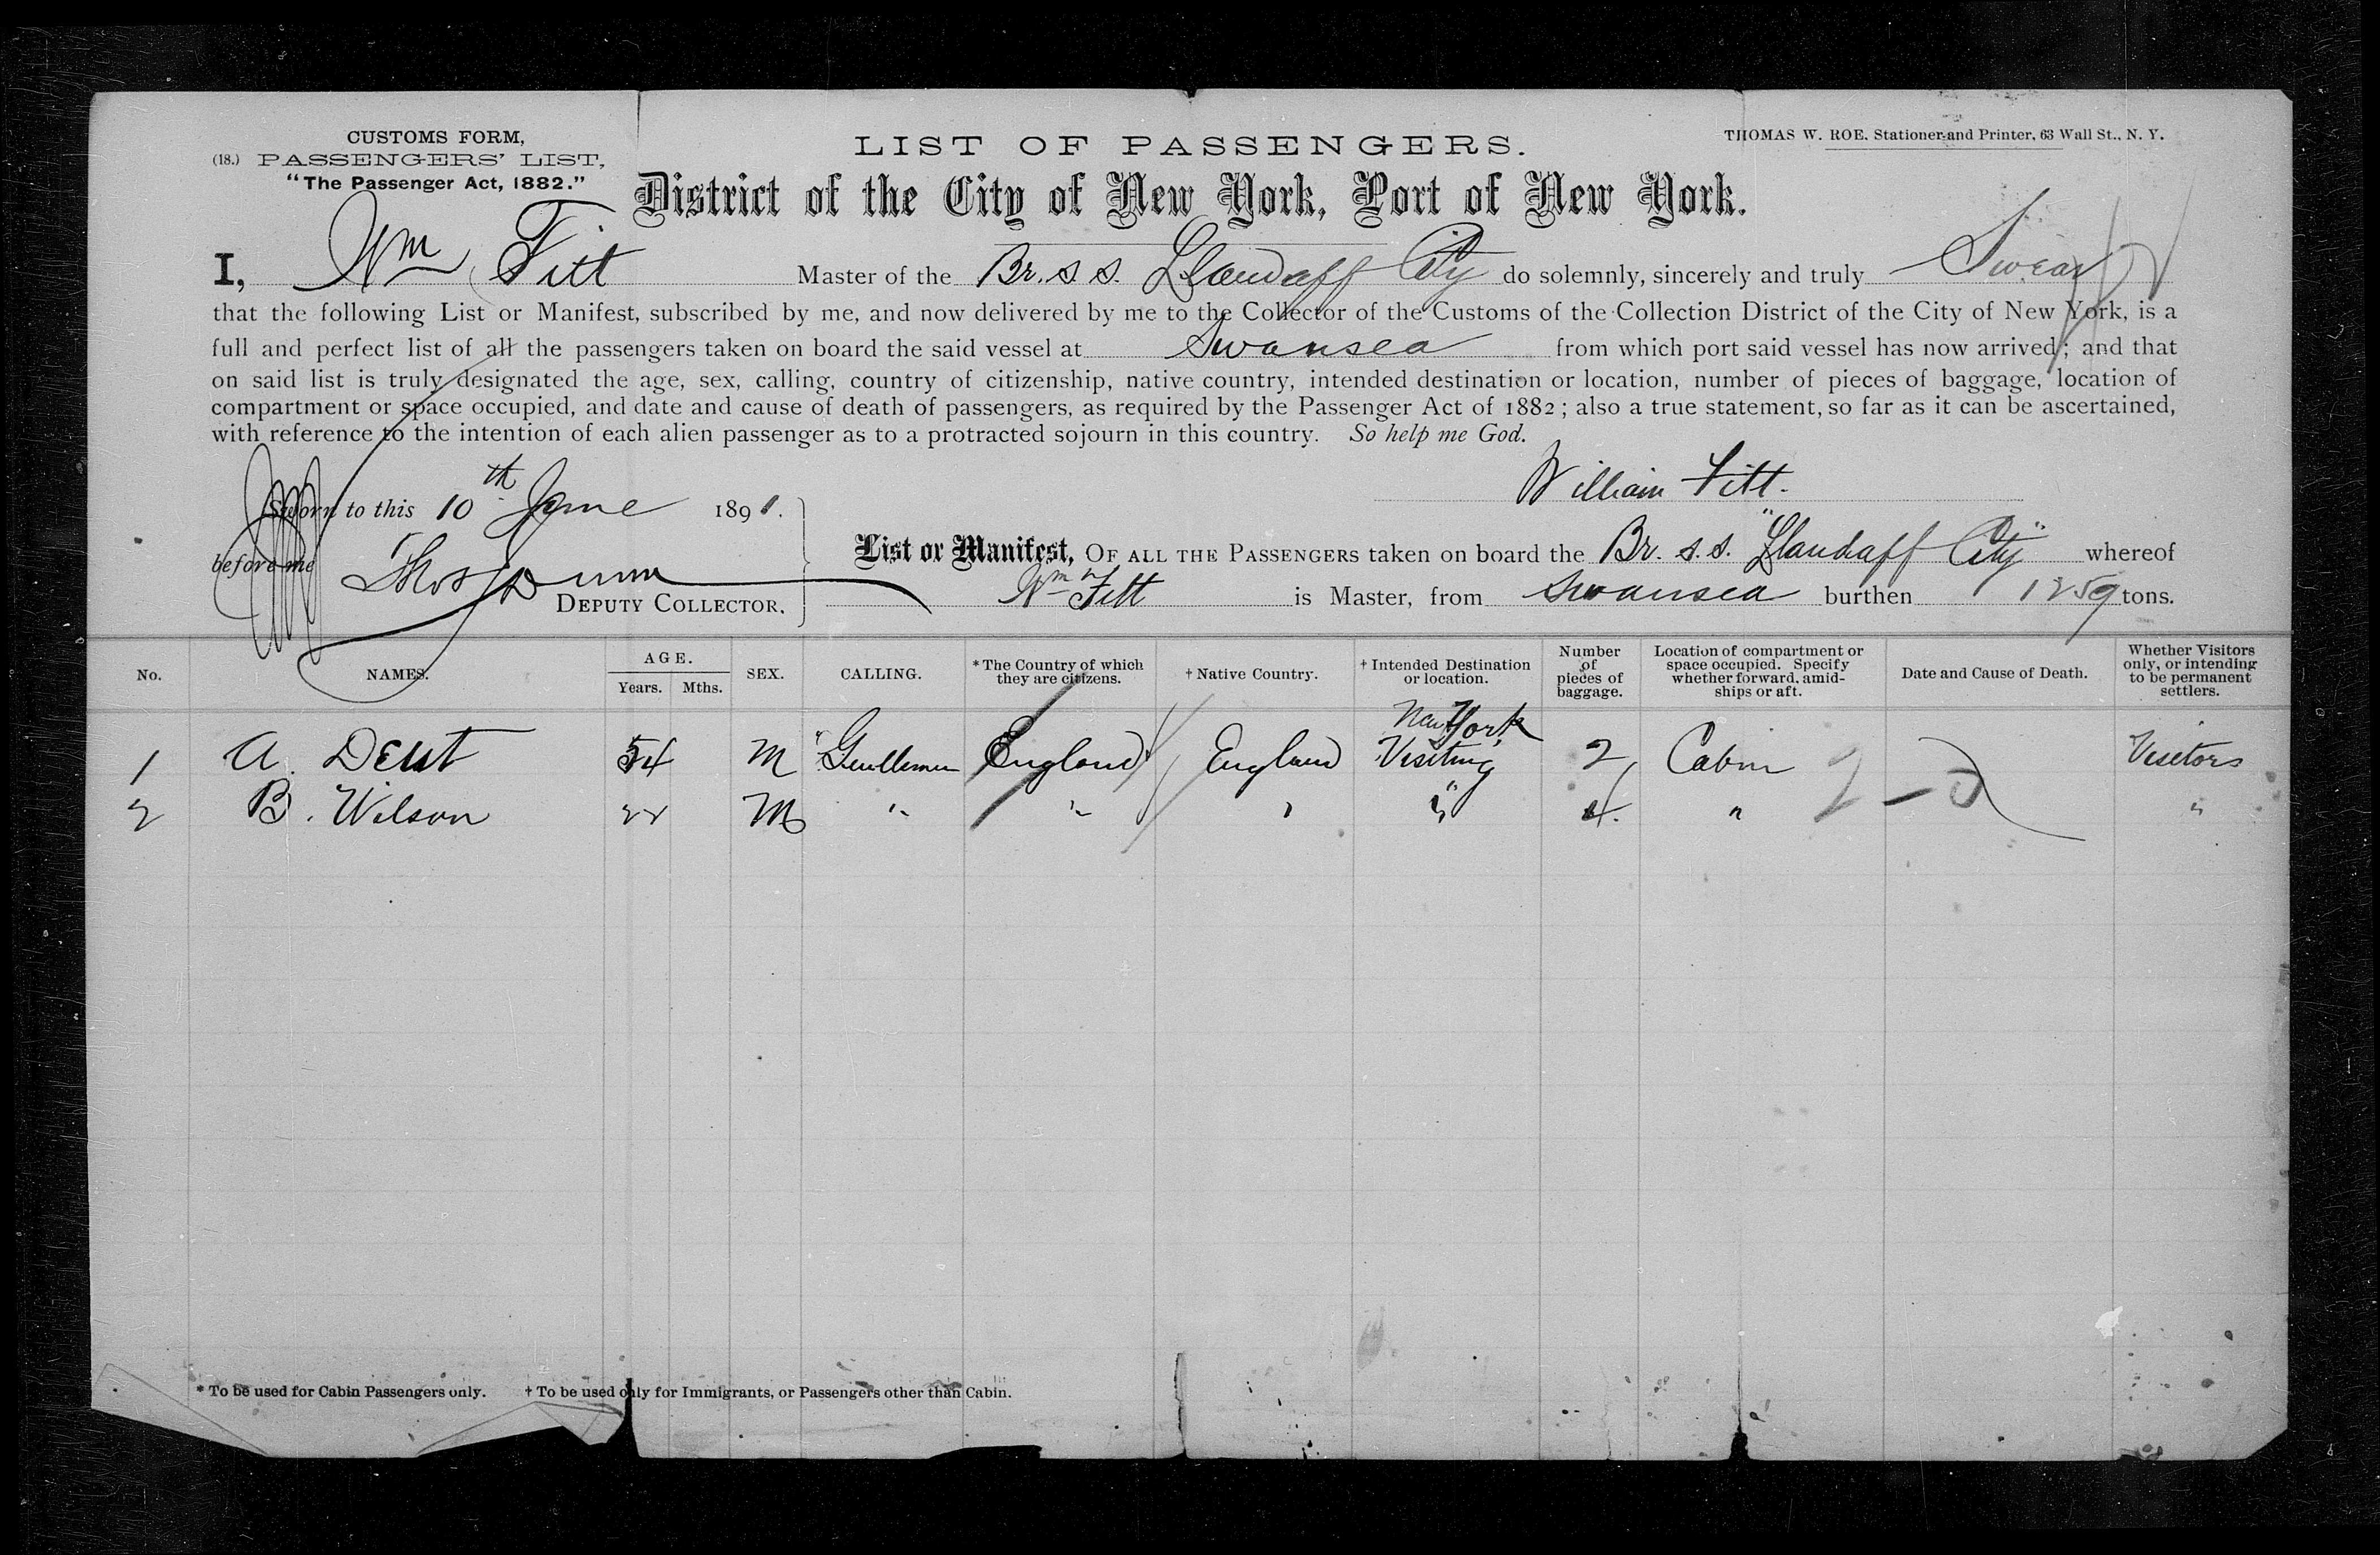 CUSTOMS FORM,
(18.) PASSENGERS' LIST,
"The Passenger Act, 1882."
LIST OF PASSENGERS.
THOMAS W. ROE. Stationer and Printer, 63 Wall St., N. Y.
District of the City of New York, Port of New York.
I, Wm Fitt Master of the Br. S. S. Llandaff City do solemnly, sincerely and truly Swear
that the following List or Manifest, subscribed by me, and now delivered by me to the Collector of the Customs of the Collection District of the City of New York, is a
full and perfect list of all the passengers taken on board the said vessel at Swansea from which port said vessel has now arrived; and that
on said list is truly designated the age, sex, calling, country of citizenship, native country, intended destination or location, number of pieces of baggage, location of
compartment or space occupied, and date and cause of death of passengers, as required by the Passenger Act of 1882; also a true statement, so far as it can be ascertained,
with reference to the intention of each alien passenger as to a protracted sojourn in this country. So help me God.
William Fitt.
Sworn to this 10th June 1891.
before me Thos Dunn
DEPUTY COLLECTOR.
List or Manifest, OF ALL THE PASSENGERS taken on board the Br. S. S. "Llandaff City" whereof
Wm Fitt is Master, from Swansea burthen 1259 tons.
No. NAMES. AGE. Years. Mths. SEX. CALLING. *The Country of which they are citizens. † Native Country. † Intended Destination or location. Number of pieces of baggage. Location of compartment or space occupied. Specify whether forward, amidships or aft. Date and Cause of Death. Whether Visitors only, or intending to be permanent settlers.
New York
1 A. Dent 54 M Gentlemen England England Visiting 2 Cabin Visitors
2 B. Wilson 22 M " " " " 4. " "
2 - 0
* To be used for Cabin Passengers only. † To be used only for Immigrants, or Passengers other than Cabin.